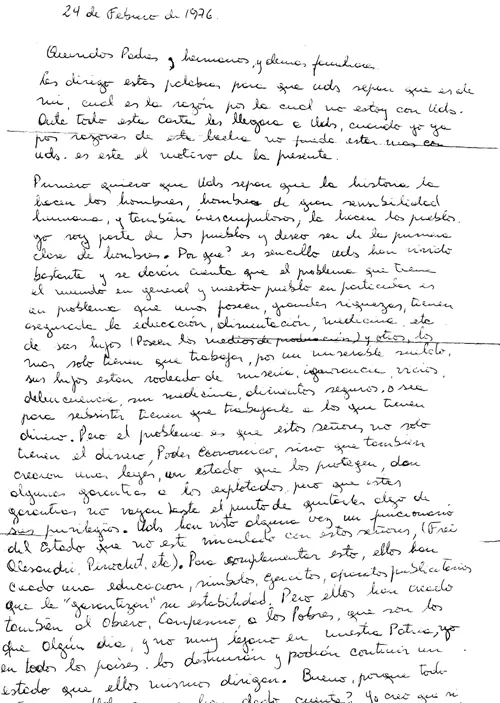 24 de Febrero de 1976.
Queridos Padres y hermanos, y demas familiares
Les dirigo estas palabras para que uds sepan que es de
mi, cual es la razón por la cual no estoy con Uds.
Ante todo esta carta les llegara a Uds, cuando yo ya
por razones de esta lucha no pueda estar mas con
uds. es este el motivo de la presente.
Primero quiero que Uds sepan que la historia la
hacen los hombres, hombres de gran sensibilidad
humana, y tambien inescrupulosos, la hacen los pueblos.
yo soy parte de los pueblos y deseo ser de la primera
clase de hombres. Por que? es sencillo uds han vivido
bastante y se darán cuenta que el problema que tiene
el mundo en general y nuestro pueblo en particular es
un problema que unos poseen, grandes riquezas, tienen
asegurada la educación, alimentación, medicina etc
de sus hijos (Poseen los medios de producción) y otros, los
mas solo tienen que trabajar, por un miserable sueldo,
sus hijos estan rodeado de miseria, ignorancia, vicios,
delincuencia, sin medicina, alimentos seguros, o sea
para subsistir tienen que trabajarle a los que tienen
dinero. Pero el problema es que estos señores no solo
tienen el dinero, Poder Economico, sino que también
crearon unas leyes, un estado que los protegen, dan
algunas garantias a los explotados, pero que estas
garantias no vayan hasta el punto de quitarles algo de
sus privilegios. Uds han visto alguna vez un funcionario
del Estado que no esté vinculado con estos señores, (Frei
Alessandri, Pinochet, etc). Para complementar esto, ellos han
creado una educacion, simbolos, Ejercitos, aparatos publicitarios
que le "garantizan" su estabilidad. Pero ellos han creado
también al Obrero, Campesino, a los Pobres, que son los
que algún dia, y no muy lejano en nuestra Patria, yo
en todos los paises. los destruirán y podrán contruir un
estado que ellos mismos dirigan. Bueno, porque todo
Uds han dado cuenta? Yo creo que si